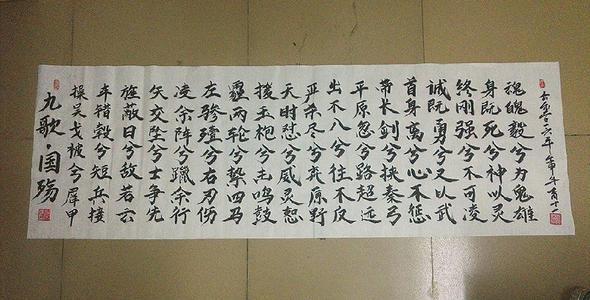 九歌·国殇
操吴戈被兮犀甲
车错毂兮短兵接
旌蔽日兮敌若云
矢交坠兮士争先
凌余阵兮躐余行
左骖殪兮右刃伤
霾两轮兮絷四马
援玉枹兮击鸣鼓
天时怼兮威灵怒
严杀尽兮弃原野
出不入兮往不反
平原忽兮路超远
带长剑兮挟秦弓
首身离兮心不惩
诚既勇兮又以武
终刚强兮不可凌
身既死兮神以灵
魂魄毅兮为鬼雄